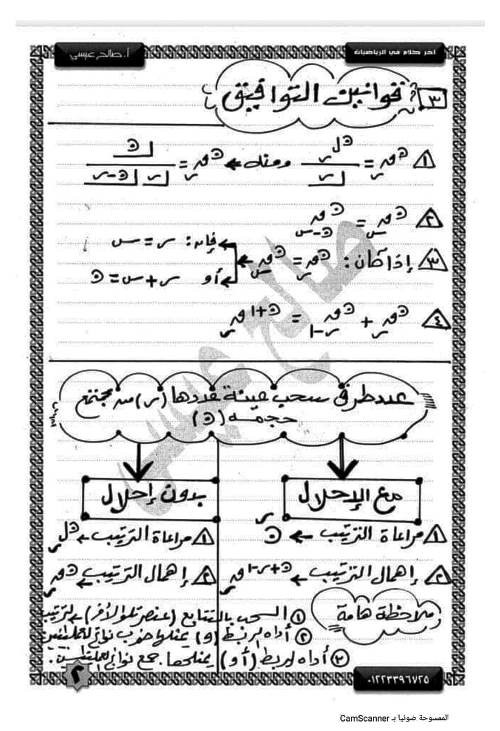 آخر كلام فى الرياضيات
أ. صالح عيسى
٣ قوانين التوافيق
١ ⁿقر = ⁿلر / ⌊ر ومنه ← ⁿقر = ⌊ن / ⌊ر ⌊ن-ر
٢ ⁿقس = ⁿقن-س
٣ إذا كان: ⁿقر = ⁿقس ← فإنه: ر = س
أو ر + س = ن
٤ ⁿقر + ⁿقر-١ = ⁿ⁺¹قر
صالح عيسى
عدد طرق سحب عينة عددها (ر) من مجتمع
حجمه (ن)
مع الإحلال
١ مراعاة الترتيب ← نʳ
٢ إهمال الترتيب ← ن+ر-١قر
بدون إحلال
١ مراعاة الترتيب ← ⁿلر
٢ إهمال الترتيب ← ⁿقر
ملاحظة هامة
١ السحب بالتتابع (عنصر تلو الآخر)
٢ أداه الربط (و) يمثلها ضرب نواتج
٣ أداه الربط (أو) يمثلها جمع نواتج
٢
٠١٢٢٣٣٩٦٧٢٥
الممسوحة ضوئيا بـ CamScanner